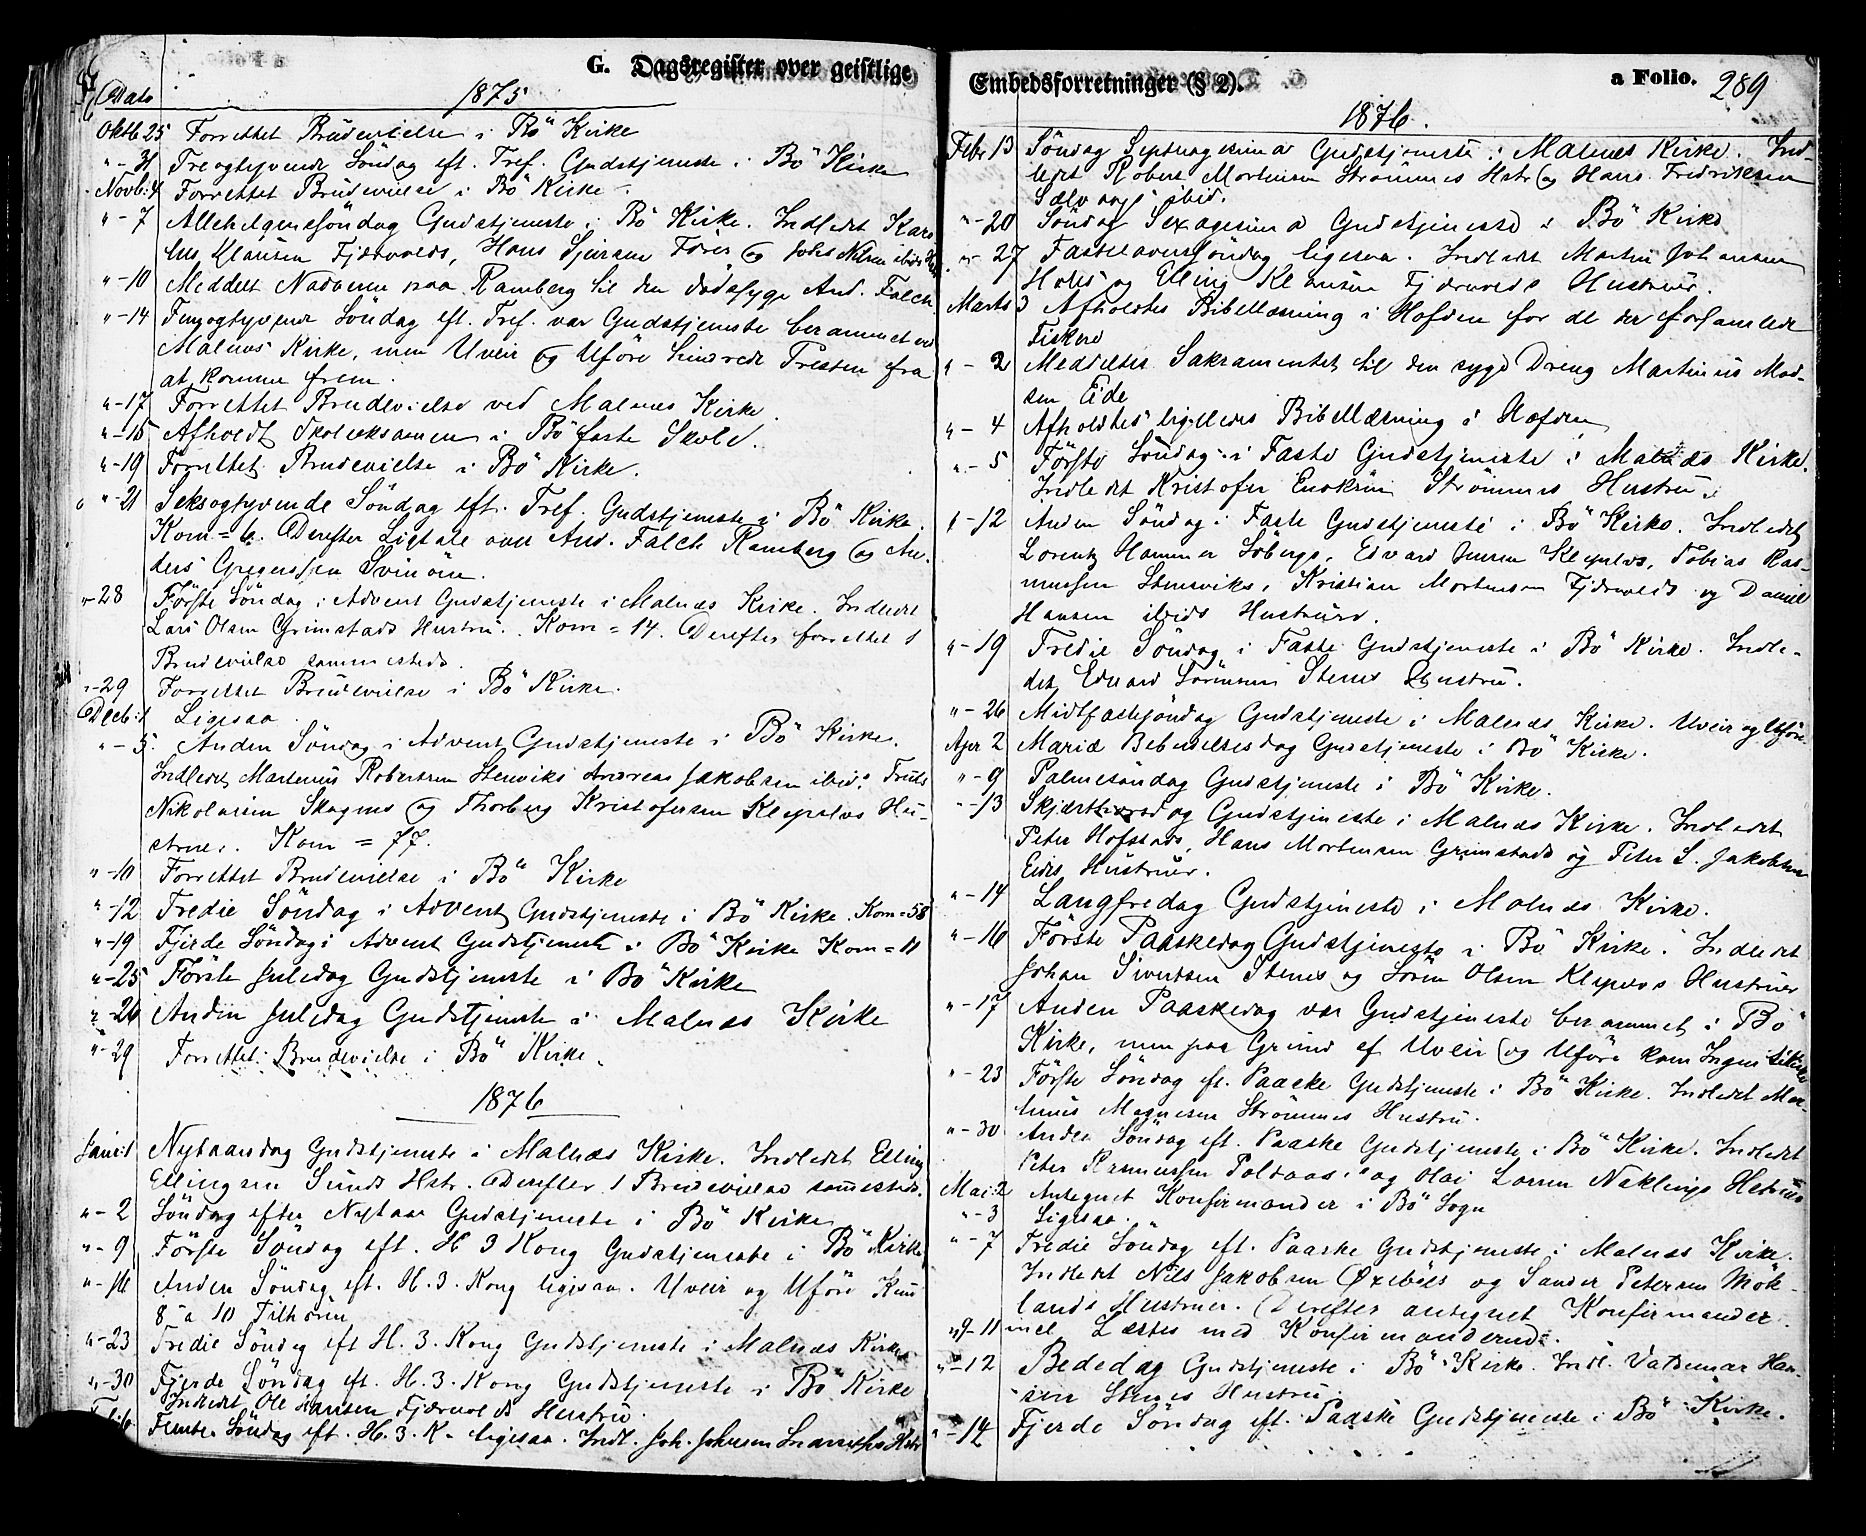 G. Dagsregister over geistlige
Dato 1875
Oktb 25 Forrettet Brudevielse i Bö Kirke
" - 31 Treogtyvende Söndag eft. Tref. Gudstjeneste i Bö Kirke
Novb: 4 Forrettet Brudevielse i Bö Kirke
" - 7 Allehelgenssöndag Gudstjeneste i Bö Kirke. Indledet Karo
lus Klausen Fjærvolds, Hans Sjursen Föres og
" - 10 Meddelt Nadveren paa Ramberg til den dödssyge And. Falch
" - 14 Femogtyvende Söndag eft. Tref. var Gudstjeneste berammet ved
Malnæs Kirke, men Uveir og Uföre hindrede Presten fra
at komme frem.
" - 17 Forrettet Brudevielse ved Malnæs Kirke.
" - 15 Afholdt Skoleeksamen i Bö faste Skole.
" - 19 Forrettet Brudevielse i Bö Kirke.
" - 21 Seksogtyvende Söndag eft. Tref. Gudstjeneste i Bö Kirke.
Kom = 6. Derefter Ligtale over And. Falch Ramberg og An-
ders Gregerssen Svinöen.
" - 28 Förste Söndag i Advent Gudstjeneste i Malnæs Kirke. Indledet
Lars Olsen Grimstads Hustru. Kom = 14. Derefter forrettet 1
Brudevielse sammesteds.
" - 29 Forrettet Brudevielse i Bö Kirke.
Decb: 1 Ligesaa.
" - 5. Anden Söndag i Advent Gudstjeneste i Bö Kirke.
Indledet Martinus Robertsen Stensviks Andreas Jakobsen ibid:
Nikolaisen Skagens og Thorberg Kristofersen Klepulvs Hu-
struer. Kom = 77.
" - 10 Forrettet Brudevielse i Bö Kirke
" - 12 Tredie Söndag i Advent Gudstjeneste i Bö Kirke. Kom = 58
" - 19 Fjerde Söndag i Advent Gudstjeneste i Bö Kirke Kom = 11
" - 25 Förste Juledag Gudstjeneste i Bö Kirke
" - 26 Anden Juledag Gudstjeneste i Malnæs Kirke
" - 29 Forrettet Brudevielse i Bö Kirke.
1876
Jan: 1 Nytaarsdag Gudstjeneste i Malnæs Kirke. Indledet Elling
Ellingsen Sunds Hstr. Derefter 1 Brudevielse sammesteds.
" - 2 Söndag efter Nytaar Gudstjeneste i Bö Kirke
" - 9 Förste Söndag eft. H. 3 Kong Gudstjeneste i Bö Kirke
" - 16 Anden Söndag eft. H. 3. Kong ligesaa. Uveir og Uföre Kun
8 a 10 Tilhörere
" - 23 Tredie Söndag eft H. 3. Kong Gudstjeneste i Malnæs Kirke
" - 30 Fjerde Söndag eft. H. 3. Kong Gudstjeneste i Bö Kirke
Indledet Ole Hansen Fjærvolds Hustru.
6 Femte Söndag eft. H. 3. K. ligesaa. Indl. Joh. Johnsen Hstr
Embedsforretninger (§ 2).
a Folio. 289
1876.
Febr 13 Söndag Septuagesima Gudstjeneste i Malnæs Kirke. Ind-
ledet Robert Mortensen Strömmes Hstr og Hans Fredriksen
ibid.
" - 20 Söndag Sexagesima Gudstjeneste i Bö Kirke
" - 27 Fastelavnssöndag ligesaa. Indledet Martin Johansen
Hovs og Elling Klausen Fjærvolds Hustruer.
Marts 3 Afholdtes Bibellæsning i Hofden for de der forsamlede
Fiskere
" - 2 Meddeltes Sakramentet til den syge Dreng Martinus Mad-
sen Eide
" - 4 Afholdtes ligeledes Bibellæsning i Hofden
" - 5 Förste Söndag i Faste Gudstjeneste i Malnæs Kirke.
Indledet Kristofer Enoksen Strömmes Hustru.
" - 12 Anden Söndag i Faste Gudstjeneste i Bö Kirke. Indledet
Lorentz Hammer Söbergs, Edvard Jensen Klepulvs, Tobias Ras-
mussen Stensviks, Kristian Mortensen Fjærvolds og Daniel
Hansen ibids Hustruer.
" - 19 Tredie Söndag i Faste Gudstjeneste i Bö Kirke. Indle-
det Edvard Sörensen Stenes Hustru.
" - 26 Midtfastesöndag Gudstjeneste i Malnæs Kirke. Uveir og Uföre.
Apr 2 Mariæ Bebudelsesdag Gudstjeneste i Bö Kirke.
" - 9 Palmesöndag Gudstjeneste i Bö Kirke.
" - 13 Skjærthorsdag Gudstjeneste i Malnæs Kirke. Indledet
Peter Hofstads, Hans Mortensen Grimstads og Peter L. Jakobsen
Eides Hustruer.
" - 14 Langfredag Gudstjeneste i Malnæs Kirke.
" - 16 Förste Paaskedag Gudstjeneste i Bö Kirke. Indledet
Johan Sivertsen Stenes og Sören Olsen Klepulvs Hustruer
" - 17 Anden Paaskedag var Gudstjeneste berammet i Bö
Kirke, men paa Grund af Uveir og Uföre kom Ingen til Kirke
" - 23 Förste Söndag eft. Paaske Gudstjeneste i Bö Kirke. Indledet Mar-
thinus Magnesen Strömmes Hustru.
" - 30 Anden Söndag eft. Paaske Gudstjeneste i Bö Kirke. Indledet
Peter Rasmussen og Olai Larsen Nyklings Hstruer
Mai: 2 Antegnet Konfirmander i Bö Sogn
" - 3 Ligesaa.
" - 7 Tredie Söndag eft. Paaske Gudstjeneste i Malnæs Kirke.
Indledet Nils Jakobsen Oxebös og Sander Petersen Mök-
lands Hustruer. Derefter antegnet Konfirmander.
" 9 - 11 incl. Læstes med Konfirmanderne.
" - 12 Bededag Gudstjeneste i Bö Kirke. Indl. Valdemar Han-
sen Stenes Hustru.
" - 14 Fjerde Söndag eft. Paaske Gudstjeneste i Bö Kirke.